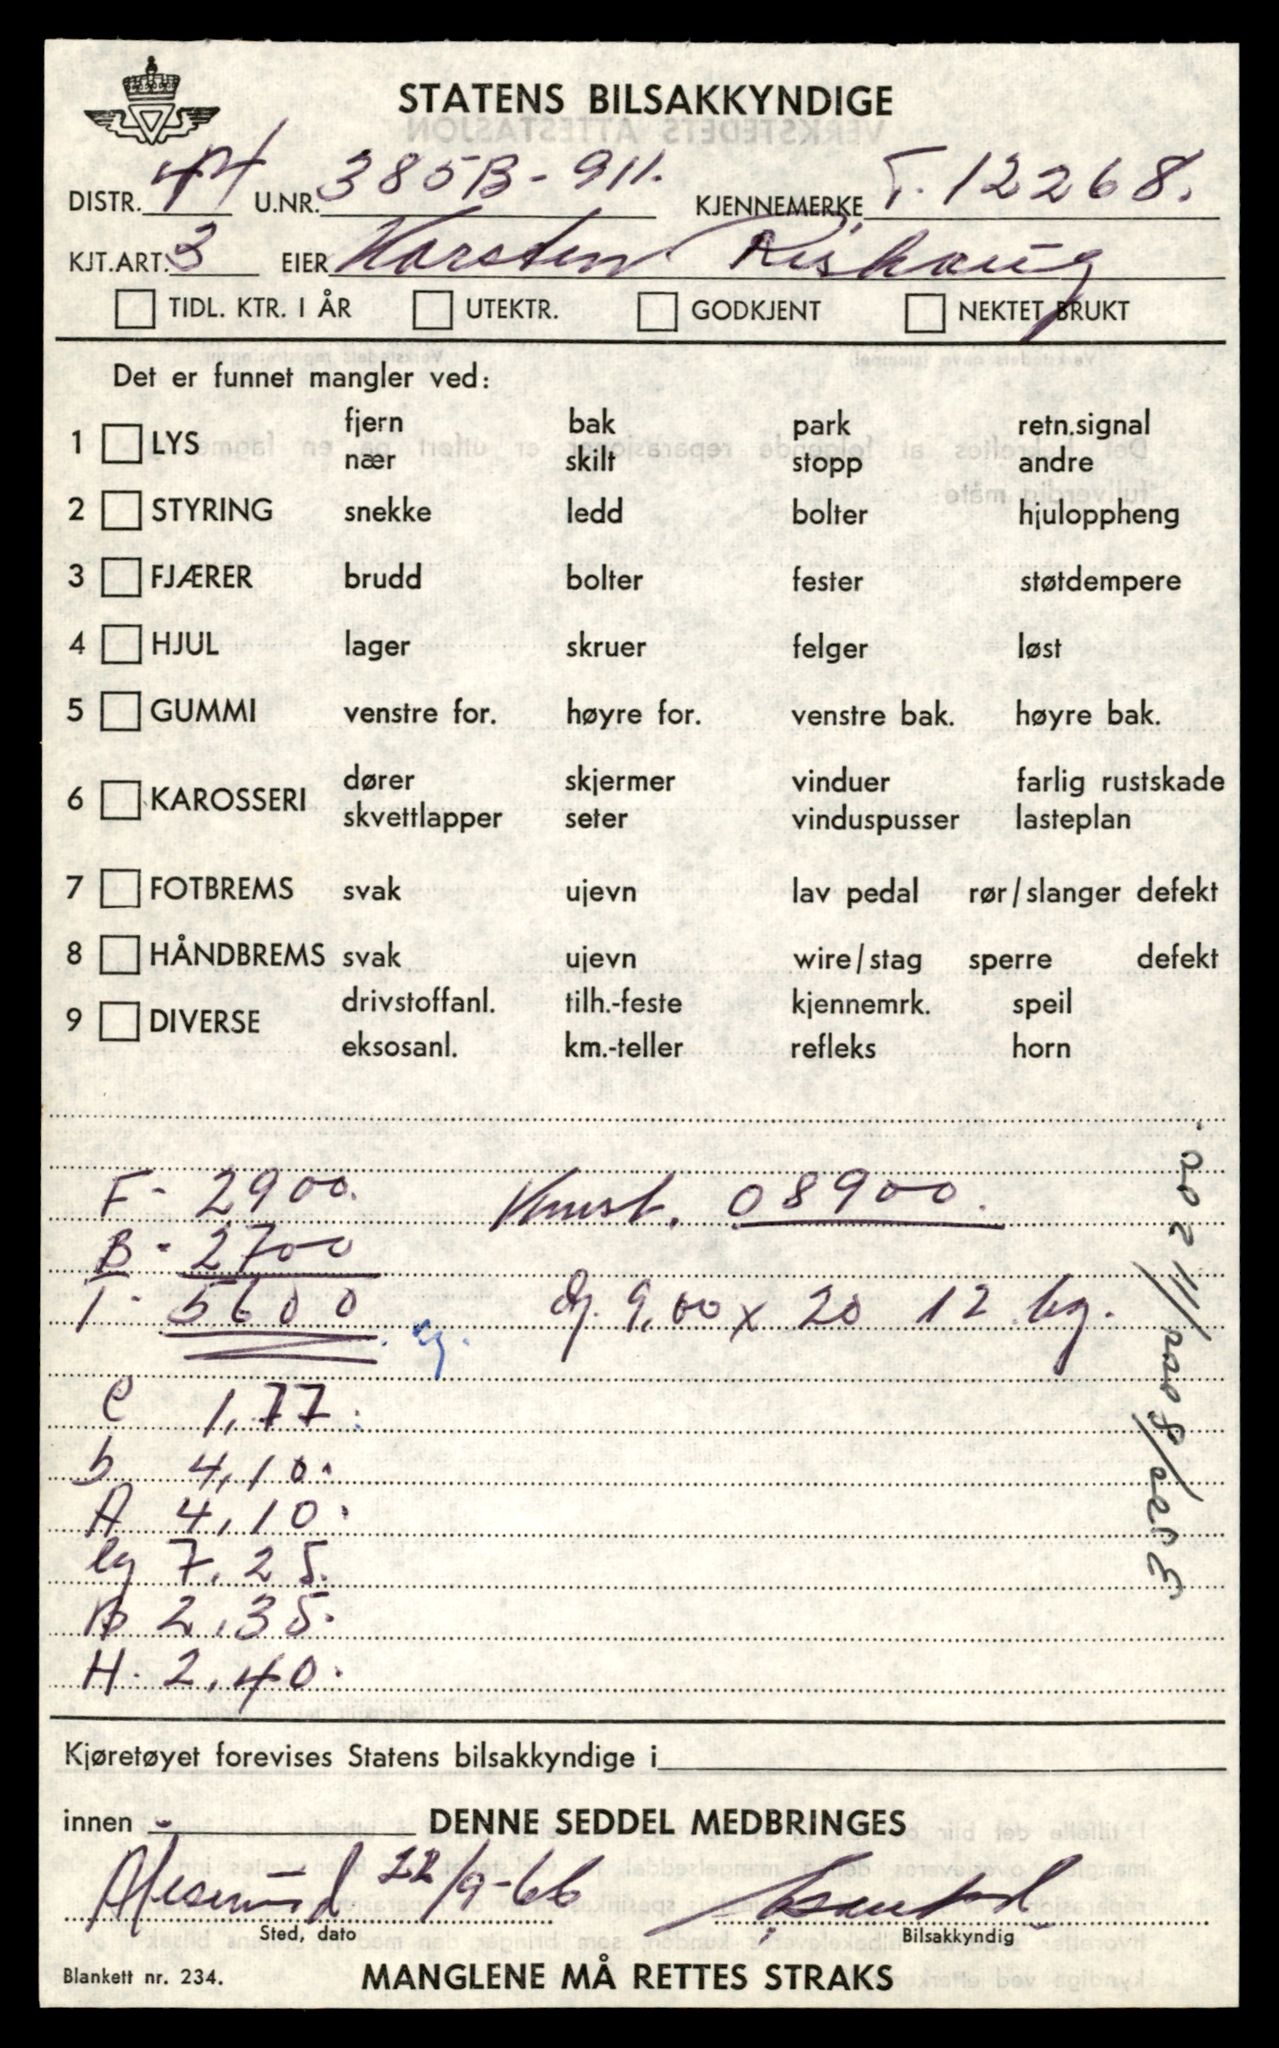 STATENS BILSAKKYNDIGE
DISTR. 44 U.NR. 385B-911. KJENNEMERKE T.12268.
KJT.ART. 3 EIER Karsten Rishaug
TIDL. KTR. I ÅR UTEKTR. GODKJENT NEKTET BRUKT
Det er funnet mangler ved:
1 LYS fjern bak park retn.signal
nær skilt stopp andre
2 STYRING snekke ledd bolter hjuloppheng
3 FJÆRER brudd bolter fester støtdempere
4 HJUL lager skruer felger løst
5 GUMMI venstre for. høyre for. venstre bak. høyre bak.
6 KAROSSERI dører skjermer vinduer farlig rustskade
skvettlapper seter vinduspusser lasteplan
7 FOTBREMS svak ujevn lav pedal rør/slanger defekt
8 HÅNDBREMS svak ujevn wire/stag sperre defekt
9 DIVERSE drivstoffanl. tilh.-feste kjennemrk. speil
eksosanl. km.-teller refleks horn
F- 2900. 08900.
B- 2700
T- 5600 9,00 x 20 12 lg.
C 1,77.
b 4,10.
A 4,10.
lg 7.25.
B 2.35.
H. 2,40.
Kjøretøyet forevises Statens bilsakkyndige i
innen DENNE SEDDEL MEDBRINGES
Ålesund 22/9-66
Sted, dato Bilsakkyndig
Blankett nr. 234. MANGLENE MÅ RETTES STRAKS